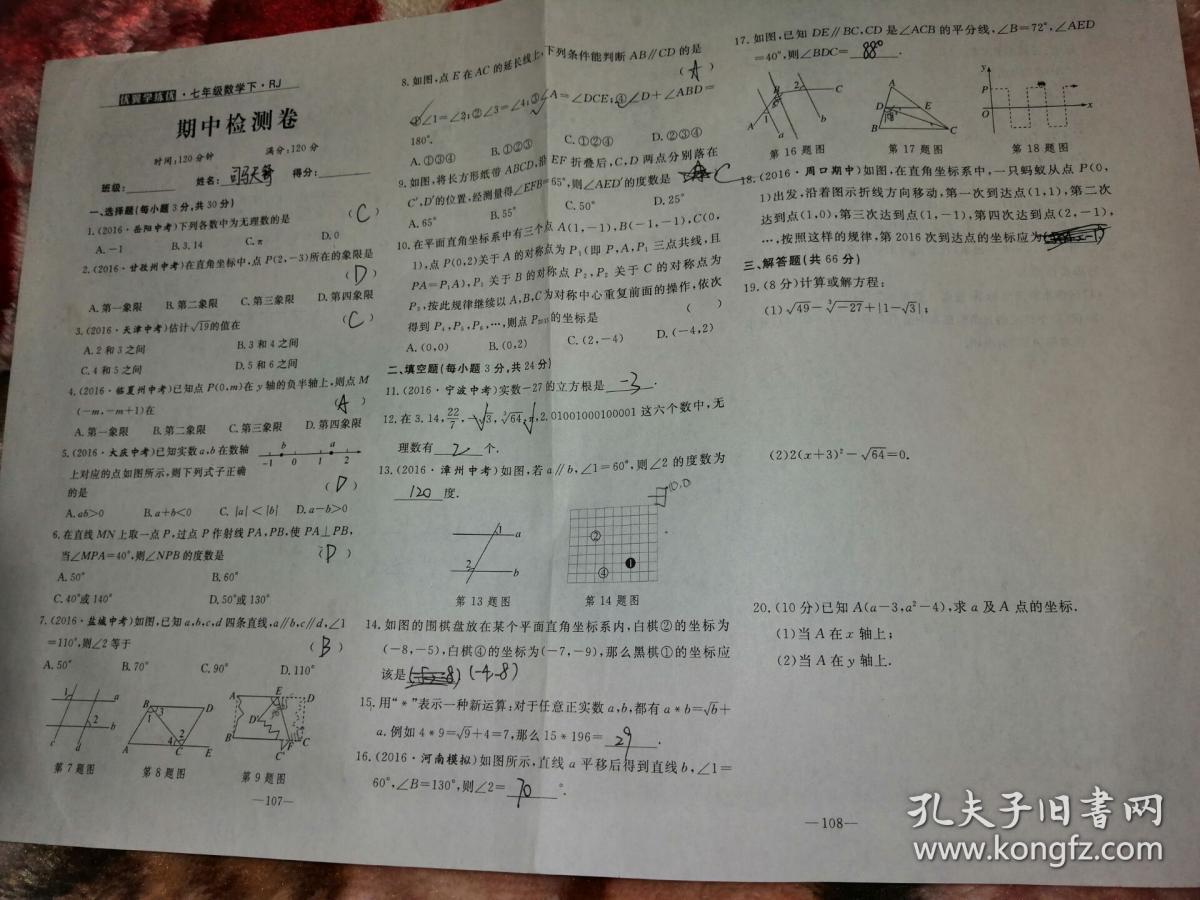 优翼学练优·七年级数学下·RJ
期中检测卷
时间:120分钟 满分:120分
班级: 姓名: 得分:
一、选择题(每小题3分,共30分)
1.(2016·岳阳中考)下列各数中为无理数的是 (C)
A.-1 B.3.14 C.π D.0
2.(2016·甘孜州中考)在直角坐标中,点P(2,-3)所在的象限是 (D)
A.第一象限 B.第二象限 C.第三象限 D.第四象限
3.(2016·天津中考)估计√19的值在 (C)
A.2和3之间 B.3和4之间
C.4和5之间 D.5和6之间
4.(2016·临夏州中考)已知点P(0,m)在y轴的负半轴上,则点M
(-m,-m+1)在 (A)
A.第一象限 B.第二象限 C.第三象限 D.第四象限
5.(2016·大庆中考)已知实数a,b在数轴
上对应的点如图所示,则下列式子正确
的是 (D)
b a
-1 0 1 2
A.ab>0 B.a+b<0 C.|a|<|b| D.a-b>0
6.在直线MN上取一点P,过点P作射线PA,PB,使PA⊥PB,
当∠MPA=40°,则∠NPB的度数是 (D)
A.50° B.60°
C.40°或140° D.50°或130°
7.(2016·盐城中考)如图,已知a,b,c,d四条直线,a∥b,c∥d,∠1
=110°,则∠2等于 (B)
A.50° B.70° C.90° D.110°
第7题图 第8题图 第9题图
—107—
8.如图,点E在AC的延长线上,下列条件能判断AB∥CD的是
(A)
①∠1=∠2;②∠3=∠4;③∠A=∠DCE;④∠D+∠ABD=
180°.
A.①③④ B.①②③ C.①②④ D.②③④
9.如图,将长方形纸带ABCD,沿EF折叠后,C,D两点分别落在
C′,D′的位置,经测量得∠EFB=65°,则∠AED′的度数是 C
A.65° B.55° C.50° D.25°
10.在平面直角坐标系中有三个点A(1,-1),B(-1,-1),C(0,
1),点P(0,2)关于A的对称点为P₁(即P,A,P₁三点共线,且
PA=P₁A),P₁关于B的对称点P₂,P₂关于C的对称点为
P₃,按此规律继续以A,B,C为对称中心重复前面的操作,依次
得到P₄,P₅,P₆,…,则点P₂₀₁₅的坐标是 ( )
A.(0,0) B.(0,2) C.(2,-4) D.(-4,2)
二、填空题(每小题3分,共24分)
11.(2016·宁波中考)实数-27的立方根是 -3 .
12.在3.14,22/7,-√3,∛64,π,2.01001000100001这六个数中,无
理数有 2 个.
13.(2016·漳州中考)如图,若a∥b,∠1=60°,则∠2的度数为
120 度.
第13题图 第14题图
14.如图的围棋盘放在某个平面直角坐标系内,白棋②的坐标为
(-8,-5),白棋④的坐标为(-7,-9),那么黑棋①的坐标应
该是 (-4,-8)
15.用“*”表示一种新运算:对于任意正实数a,b,都有a*b=√b+
a.例如4*9=√9+4=7,那么15*196= 29 .
16.(2016·河南模拟)如图所示,直线a平移后得到直线b,∠1=
60°,∠B=130°,则∠2= 70 °.
17.如图,已知DE∥BC,CD是∠ACB的平分线,∠B=72°,∠AED
=40°,则∠BDC= 88° .
第16题图 第17题图 第18题图
18.(2016·周口期中)如图,在直角坐标系中,一只蚂蚁从点P(0,
1)出发,沿着图示折线方向移动,第一次到达点(1,1),第二次
达到点(1,0),第三次达到点(1,-1),第四次达到点(2,-1),
…,按照这样的规律,第2016次到达点的坐标应为
三、解答题(共66分)
19.(8分)计算或解方程:
(1)√49-∛-27+|1-√3|;
(2)2(x+3)²-√64=0.
20.(10分)已知A(a-3,a²-4),求a及A点的坐标.
(1)当A在x轴上;
(2)当A在y轴上.
—108—
孔夫子旧书网
www.kongfz.com